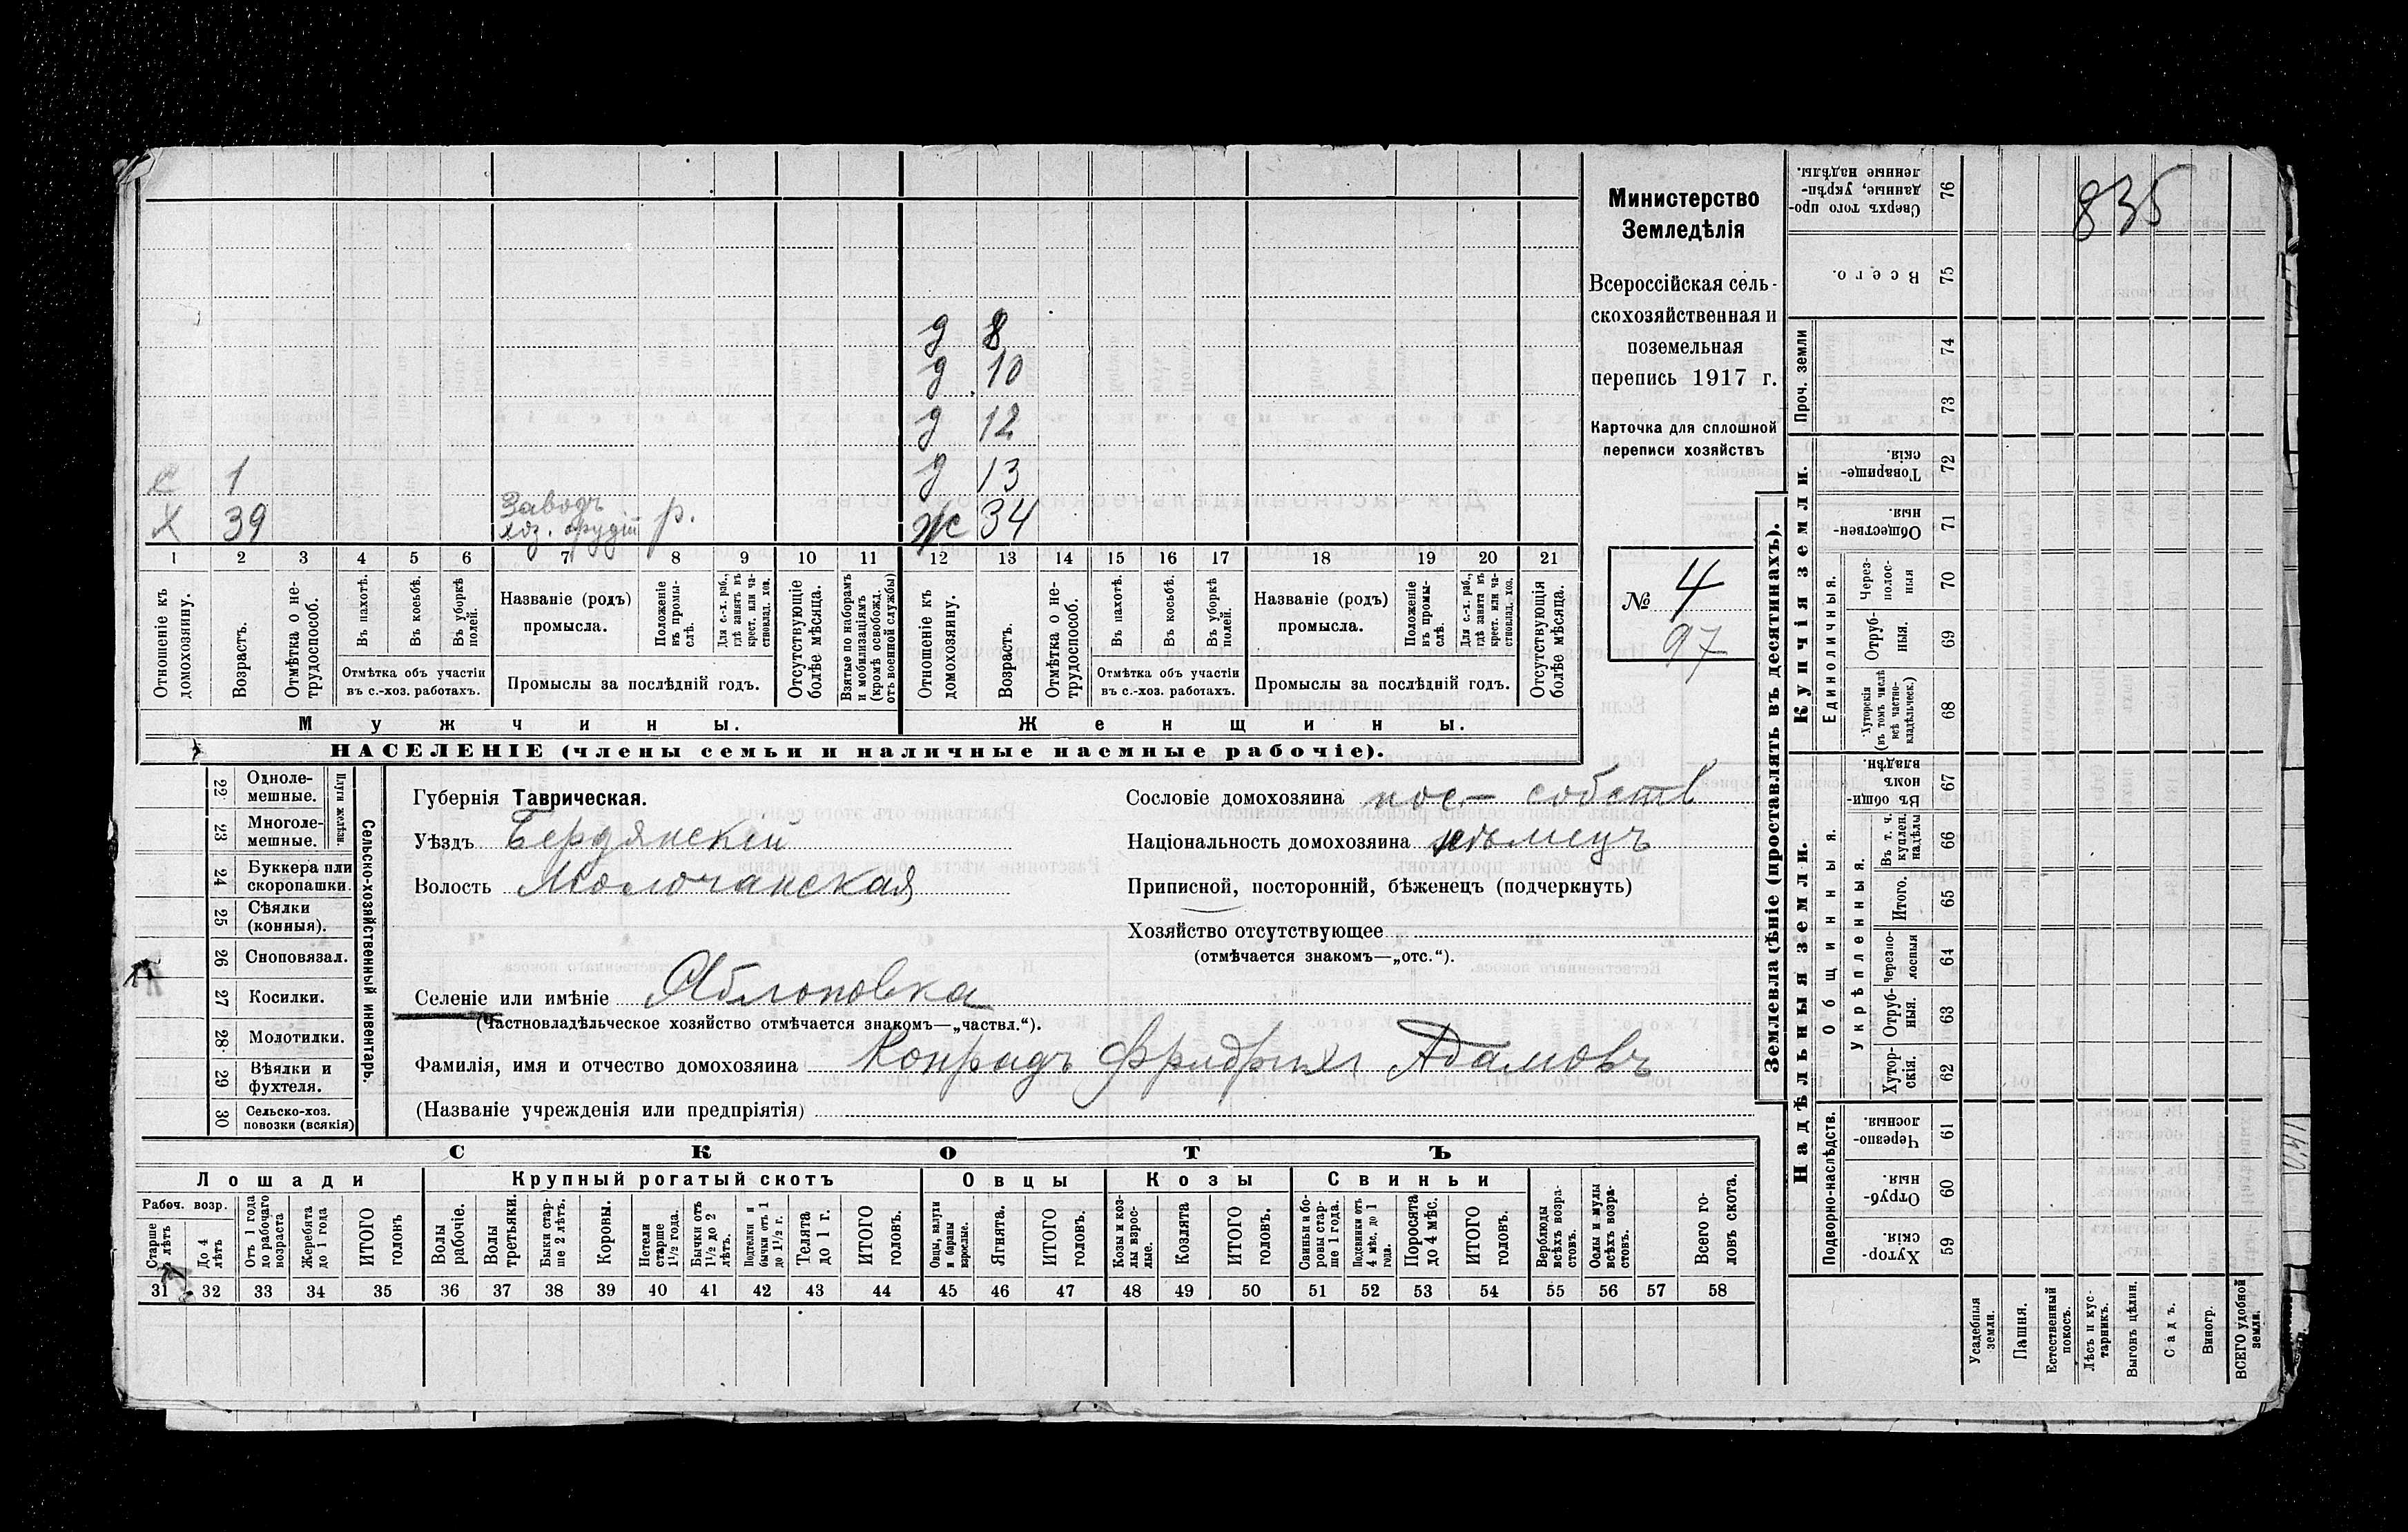 835
д 8
д 10
д 12
д 13
с 1
х 39 Заводъ хоз. орудій р. ж 34
1 2 3 4 5 6 7 8 9 10 11 12 13 14 15 16 17 18 19 20 21
Отношеніе къ домохозяину.
Возрастъ.
Отмѣтка о нетрудоспособ.
Въ пахотѣ.
Въ косьбѣ.
Въ уборкѣ полей.
Отмѣтка объ участіи въ с.-хоз. работахъ.
Названіе (родъ) промысла.
Положеніе въ промыслѣ.
Для с.-х. раб., гдѣ занятъ въ крест. или частновлад. хоз.
Промыслы за послѣдній годъ.
Отсутствующіе болѣе мѣсяца.
Взятые по наборамъ и мобилизаціямъ (кромѣ освобожд. отъ военной службы)
Отношеніе къ домохозяину.
Возрастъ.
Отмѣтка о нетрудоспособ.
Въ пахотѣ.
Въ косьбѣ.
Въ уборкѣ полей.
Отмѣтка объ участіи въ с.-хоз. работахъ.
Названіе (родъ) промысла.
Положеніе въ промыслѣ.
Для с.-х. раб., гдѣ занята въ крест. или частновлад. хоз.
Промыслы за послѣдній годъ.
Отсутствующія болѣе мѣсяца.
Мужчины. Женщины.
НАСЕЛЕНІЕ (члены семьи и наличные наемные рабочіе).
Министерство
Земледѣлія
Всероссійская сель-
скохозяйственная и
поземельная
перепись 1917 г.
Карточка для сплошной
переписи хозяйствъ
№ 4
97
22 Одноле-
мешные.
23 Многоле-
мешные.
Плуги желѣзн.
24 Буккера или
скоропашки.
25 Сѣялки
(конныя).
26 Сноповязал.
27 Косилки.
28 Молотилки.
29 Вѣялки и
фухтеля.
30 Сельско-хоз.
повозки (всякія)
Сельско-хозяйственный инвентарь.
Губернія Таврическая.
Уѣздъ Бердянскій
Волость Молочанская
Селеніе или имѣніе Яблоновка
(Частновладѣльческое хозяйство отмѣчается знакомъ—„частвл.“).
Сословіе домохозяина пос.- собств
Національность домохозяина нѣмецъ
Приписной, посторонній, бѣженецъ (подчеркнуть)
Хозяйство отсутствующее
(отмѣчается знакомъ—„отс.“).
Фамилія, имя и отчество домохозяина Конрадъ Фридрихъ Адамовъ
(Названіе учрежденія или предпріятія)
СКОТЪ
Лошади Крупный рогатый скотъ Овцы Козы Свиньи
Рабоч. возр.
Старше 4 лѣтъ
До 4 лѣтъ
Отъ 1 года до рабочаго возраста
Жеребята до 1 года
ИТОГО головъ
Волы рабочіе.
Волы третьяки.
Быки старше 2 лѣтъ.
Коровы.
Нетели старше 1½ года.
Бычки отъ 1½ до 2 лѣтъ.
Подтелки и бычки отъ 1 до 1½ г.
Телята до 1 г.
ИТОГО головъ.
Овцы, валухи и бараны взрослые.
Ягнята.
ИТОГО головъ.
Козы и козлы взрослые.
Козлята
ИТОГО головъ.
Свиньи и боровы старше 1 года.
Подсвинки отъ 4 мѣс. до 1 года.
Поросята до 4 мѣс.
ИТОГО головъ.
Верблюды всѣхъ возрастовъ.
Ослы и мулы всѣхъ возрастовъ.
Всего головъ скота.
31 32 33 34 35 36 37 38 39 40 41 42 43 44 45 46 47 48 49 50 51 52 53 54 55 56 57 58
Землевладѣніе (проставлять въ десятинахъ).
Купчія земли.
Надѣльныя земли.
76 Сверхъ того проданные, укрѣпленные надѣлы.
75 Всего.
Проч. земли
74
73
72 Товарищескія.
71 Общественныя.
Единоличныя.
70 Черезполосныя
69 Отрубныя.
68 Хуторскія (въ томъ числѣ всѣ частновладѣльческ.)
Общинныя.
67 Въ общинномъ владѣн.
66 Въ т. ч. куплен. надѣлы
Укрѣпленныя.
65 Итого.
64 Черезполосныя
63 Отрубныя.
62 Хуторскія.
Подворно-наслѣдств.
61 Черезполосныя.
60 Отрубныя.
59 Хуторскія.
Усадебныя земли.
Пашня.
Естественный покосъ.
Лѣсъ и кустарникъ.
Выгонъ цѣлин.
Садъ.
Виногр.
ВСЕГО удобной земли.